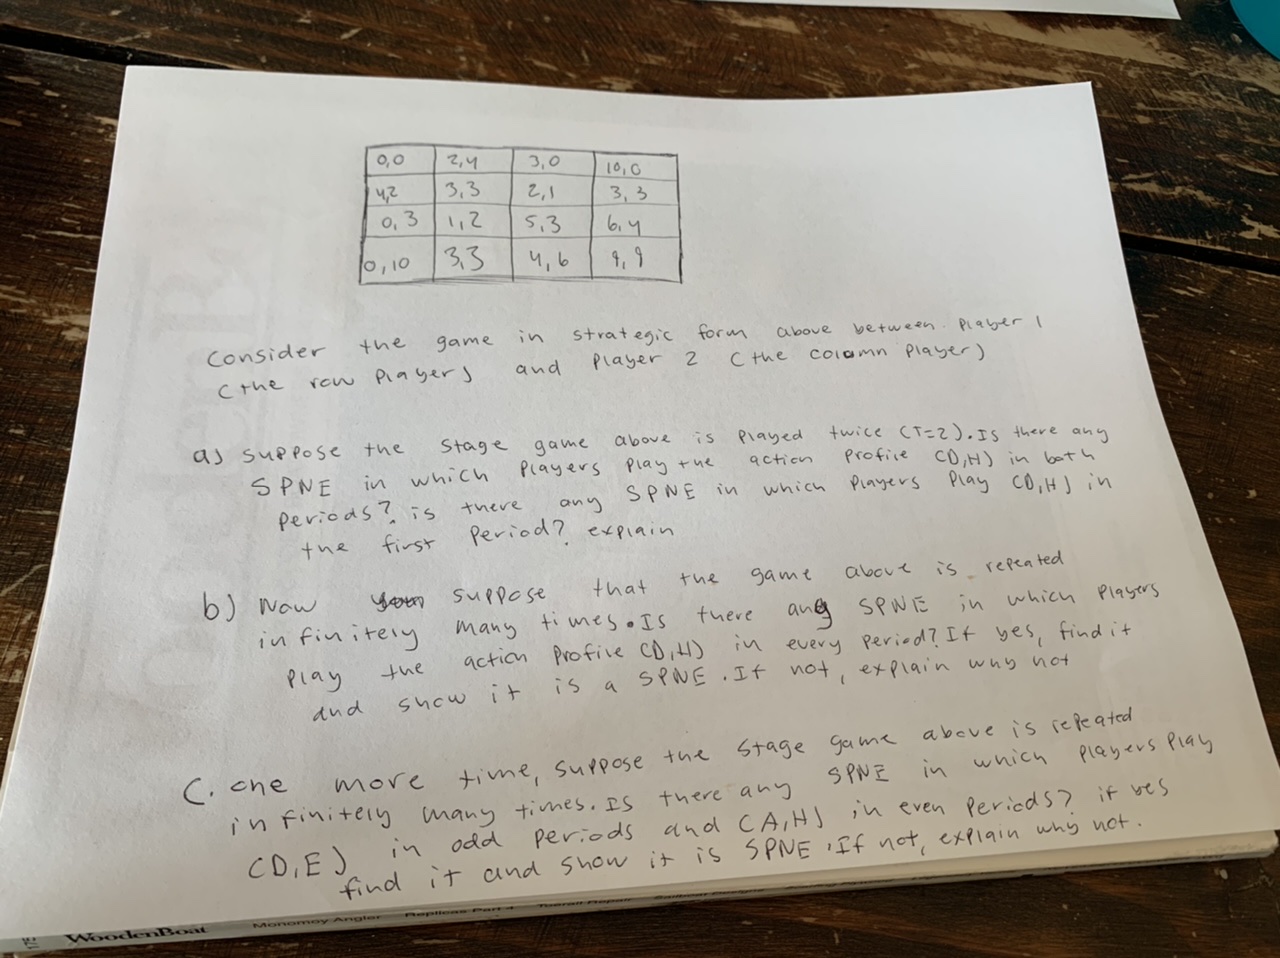 0,0 2,4 3,0 10,0
4,2 3,3 2,1 3,3
0,3 1,2 5,3 6,4
0,10 3,3 4,6 9,9
Consider the game in strategic form above between Player 1
(the row Player) and Player 2 (the column Player)
a) suppose the stage game above is Played twice (T=2). Is there any
SPNE in which Players Play the action Profile (D,H) in both
Periods? is there any SPNE in which Players Play (D,H) in
the first Period? explain
b) Now suppose that the game above is repeated
infinitely many times. Is there any SPNE in which Players
Play the action Profile (D,H) in every Period? If yes, find it
and show it is a SPNE. If not, explain why not
C. one more time, suppose the stage game above is repeated
infinitely many times. Is there any SPNE in which Players Play
(D,E) in odd Periods and (A,H) in even Periods? if yes
find it and show it is SPNE. If not, explain why not.
WoodenBoat Monomoy Angler